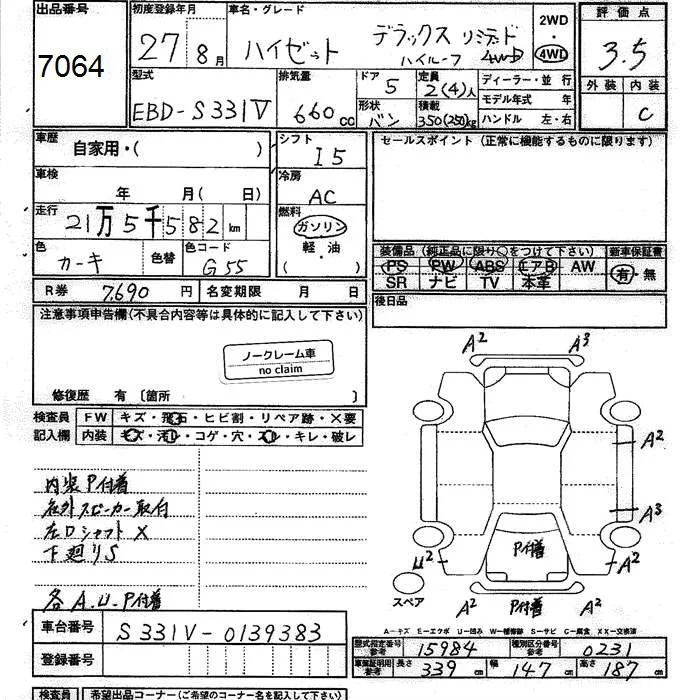 出品番号
7064
初度登録年月
27年8月
車名・グレード
ハイゼット デラックス リミテード
ハイルーフ 4WD
2WD
・
4WD
評価点
3.5
外装 内装
C
型式
EBD-S331V
排気量
660cc
ドア
5
定員
2(4)人
形状
バン
積載
350(250)kg
ディーラー・並行
モデル年式 年
ハンドル 左・右
車歴
自家用・( )
シフト
I5
セールスポイント (正常に機能するものに限ります)
車検
年 月(日)
冷房
AC
走行
21万5千582km
燃料
ガソリン
軽・油
( )
色
カーキ
色替
色コード
G55
装備品 (純正品に限り○をつけて下さい)
新車保証書
PS PW ABS エアB AW
SR ナビ TV 本革
有・無
R券 7,690円 名変期限 月 日
後日品
注意事項申告欄(不具合内容等は具体的に記入して下さい)
ノークレーム車
no claim
修復歴 有 〔箇所 〕
検査員
記入欄
FW キズ・飛石・ヒビ割・リペア跡・X要
内装 キズ・汚レ・コゲ・穴・スレ・キレ・破レ
内装P付着
右外スピーカー取付
左Dシャフト X
下廻りS
各A.U.P付着
A2 A3
A2
A3
U2 A2
P付着
スペア
A2 P付着 A2
車台番号 S331V-0139383
登録番号
A-キズ E-エクボ U-凹み W-補修跡 S-サビ C-腐食 XX-交換済
型式指定番号
参考
15984
種別区分番号
参考
0231
車庫証明用
参考
長さ 339cm 幅 147cm 高さ 187cm
検査員 希望出品コーナー(ご希望のコーナー名を記入して下さい)